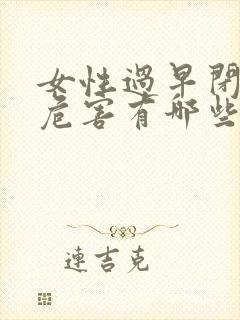 女性過早閉
危害有哪些
連吉克